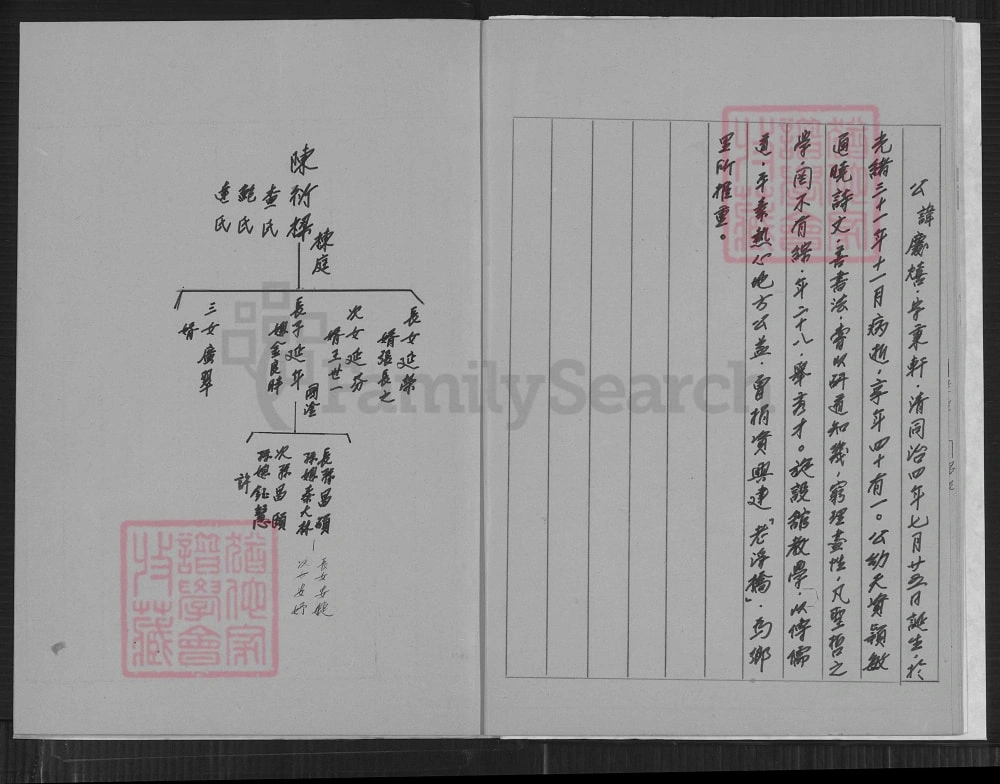 公諱慶禧·字秉軒·清同治四年七月廿五日誕生於
光緒三十一年十一月病逝·享年四十有一。公幼天資穎敏
通曉詩文·善書法·嘗以研道知幾·窮理盡性·凡聖哲之
學·罔不有綜·年二十八·舉秀才。旋設館教學·以傳儒
道·平素熱心地方公益·曾捐資興建「老浮橋」·為鄉
里所推重。
陳衍樑 棟庭
查氏
鮑氏
連氏
長女延榮
婿張長之
次女延芬
婿王世一
長子延年 國淦
媳金良時
三女廣翠
婿
長孫昌碩
孫媳秦大林
次孫昌頤
孫媳許鈺慧
長女
次女
FamilySearch